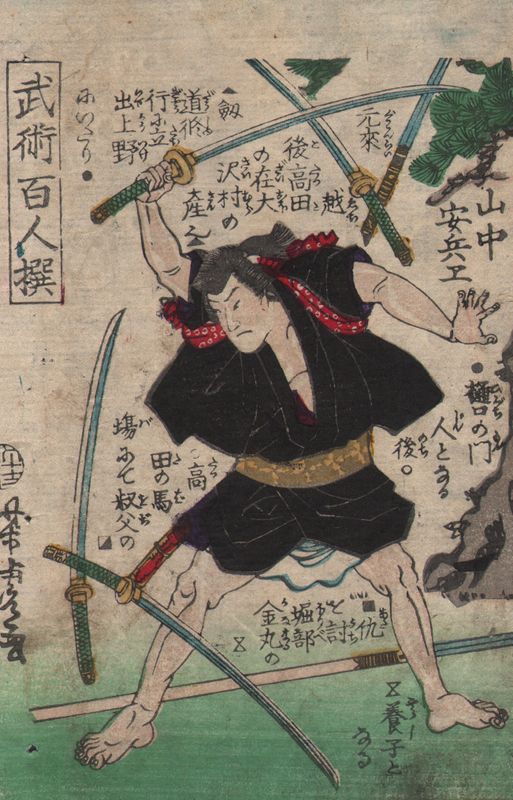 武術百人撰
山中
安兵ヱ
元來
越
後高田
の在大
沢村の
産之
▲劔
道修
行に立
出上野
にいたり●
●樋口の門
人となる
後。
高
田の馬
塲にて叔父の
◪
◪仇
を討
堀部
金丸の
⧖
⧖養子と
なる